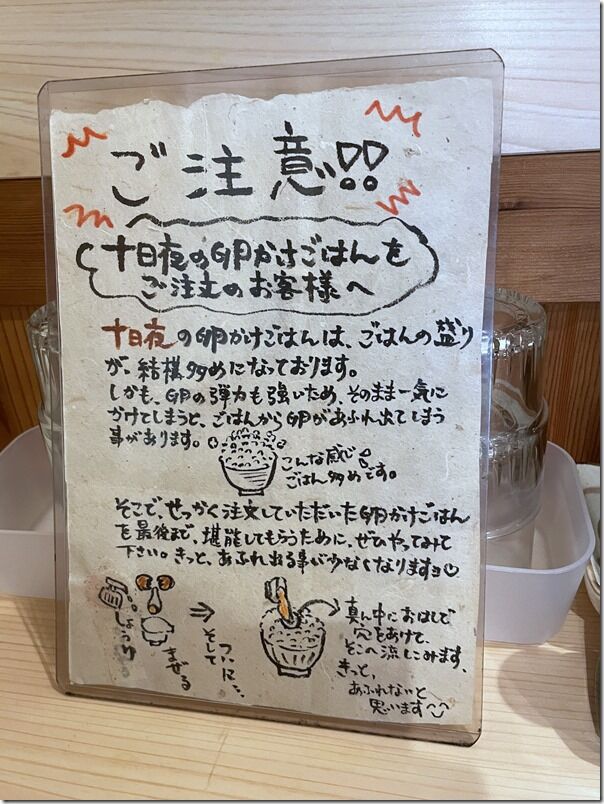 ご注意!!
十日夜の卵かけごはんを
ご注文のお客様へ
十日夜の卵かけごはんは、ごはんの盛り
が、結構多めになっております。
しかも、卵の弾力も強いため、そのまま一気に
かけてしまうと、ごはんから卵があふれ出てしまう
事があります。
こんな感じ
ごはん多めです。
そこで、せっかく注文していただいた卵かけごはん
を最後まで、堪能してもらうために、ぜひやってみて
下さい。きっと、あふれ出る事が少なくなりますョ
しょうゆ
まぜる
⇒
そして
ついに…
真ん中におはしで
穴をあけて、
そこへ流しこみます、
きっと、
あふれないと
思います